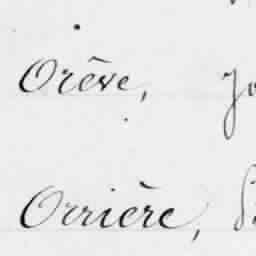 Orêve, Jo
Orrière,